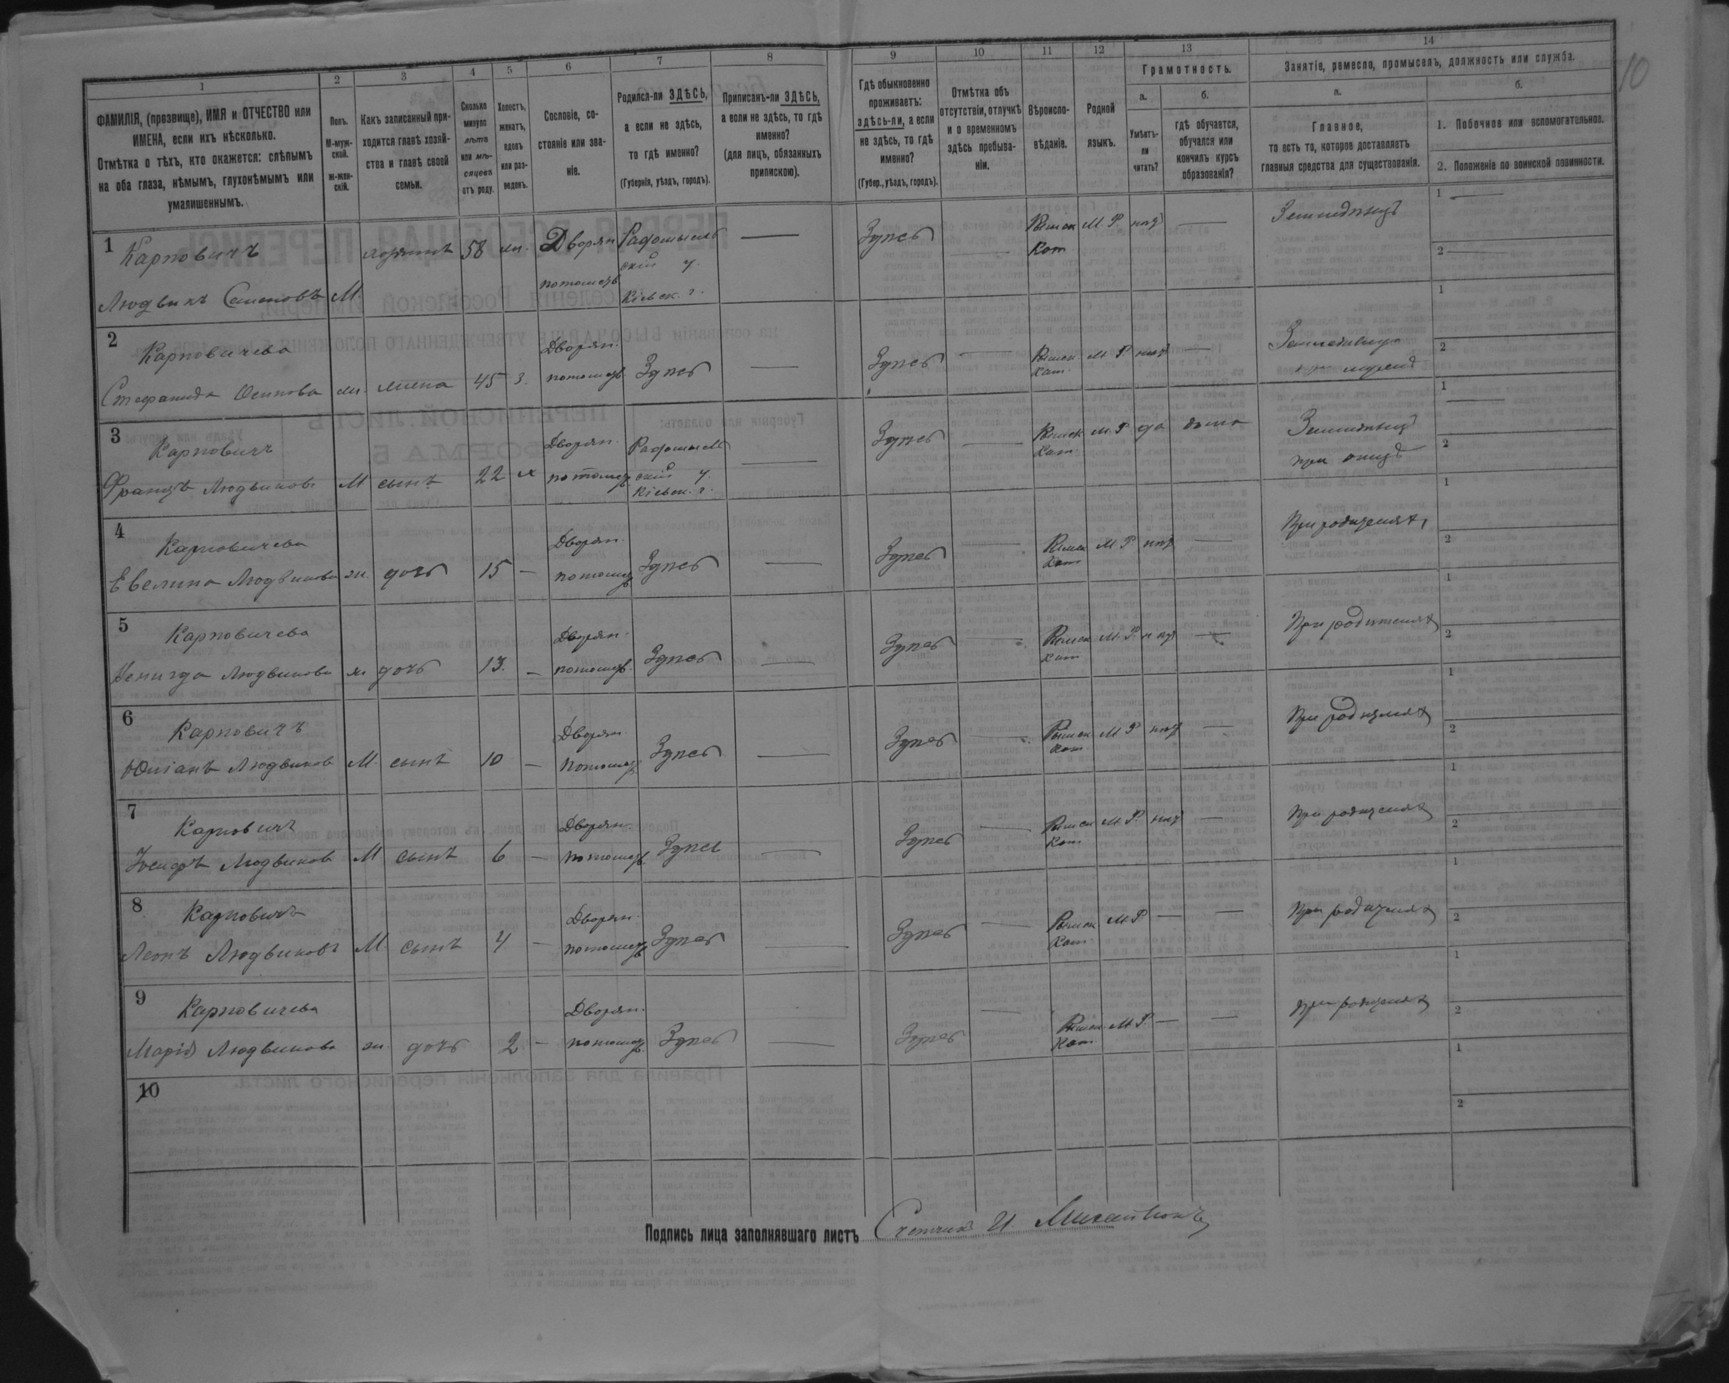 10
1 2 3 4 5 6 7 8 9 10 11 12 13 14
ФАМИЛІЯ, (прозвище), ИМЯ и ОТЧЕСТВО или
ИМЕНА, если ихъ нѣсколько.
Отмѣтка о тѣхъ, кто окажется: слѣпымъ
на оба глаза, нѣмымъ, глухонѣмымъ или
умалишеннымъ.
Полъ.
М-муж-
ской.
ж-жен-
скій.
Какъ записанный при-
ходится главѣ хозяй-
ства и главѣ своей
семьи.
Сколько
минуло
лѣтъ
или мѣ-
сяцевъ
отъ роду.
Холостъ,
женатъ,
вдовъ
или раз-
веденъ.
Сословіе, со-
стояніе или зва-
ніе.
Родился-ли ЗДѢСЬ,
а если не здѣсь,
то гдѣ именно?
(Губернія, уѣздъ, городъ).
Приписанъ-ли ЗДѢСЬ,
а если не здѣсь, то гдѣ
именно?
(для лицъ, обязанныхъ
припискою).
Гдѣ обыкновенно
проживаетъ:
здѣсь-ли, а если
не здѣсь, то гдѣ
именно?
(Губер., уѣздъ, городъ).
Отмѣтка объ
отсутствіи, отлучкѣ
и о временномъ
здѣсь пребыва-
ніи.
Вѣроиспо-
вѣданіе.
Родной
языкъ.
Грамотность.
а.
Умѣетъ-
ли
читать?
б.
гдѣ обучается,
обучался или
кончилъ курсъ
образованія?
Занятіе, ремесло, промыселъ, должность или служба.
а.
Главное,
то есть то, которое доставляетъ
главныя средства для существованія.
б.
1. Побочное или вспомогательное.
2. Положеніе по воинской повинности.
1 Карповичъ
Людвикъ Семеновъ М. хозяинъ 58 жн. Дворян. потомств. Радомысль
скій у.
Кіевск. г. Здѣсь Римск Кат М. Р. нѣтъ
2 Карповичева
Стефанида Осипова жн. жена 45 з. Дворян. потомств. Здѣсь Здѣсь Римск Кат. М. Р. нѣтъ
3 Карповичъ
Францъ Людвиковъ М сынъ 22 х Дворян. потомств. Радомысль
скій у.
Кіевск. г. Здѣсь Римск Кат. М. Р. да дома
при отцѣ
4 Карповичева
Евелина Людвикова жн. дочь 15 Дворян. потомств. Здѣсь Здѣсь Римск Кат М. Р. нѣтъ При родителях
5 Карповичева
Людвикова жн дочь 13. Дворян. потомств. Здѣсь Здѣсь Римск Кат М. Р. нѣтъ При родителях
6 Карповичъ
Юліанъ Людвиков М сынъ 10 Дворян. потомств. Здѣсь Здѣсь Римск Кат. М. Р. нѣтъ При родителях
7 Карповичъ
Людвиков М сынъ 6 Дворян. потомств. Здѣсь Здѣсь Римск Кат М. Р. нѣтъ При родителях
8 Карповичъ
Леонъ Людвиковъ М сынъ 4 Дворян. потомств. Здѣсь Здѣсь Римск Кат М Р. При родителях
9 Карповичева
Марія Людвикова жн. дочь 2 Дворян. потомств. Здѣсь Здѣсь Римск Кат М. Р. При родителях
10
Подпись лица заполнявшаго листъ Счетчикъ И